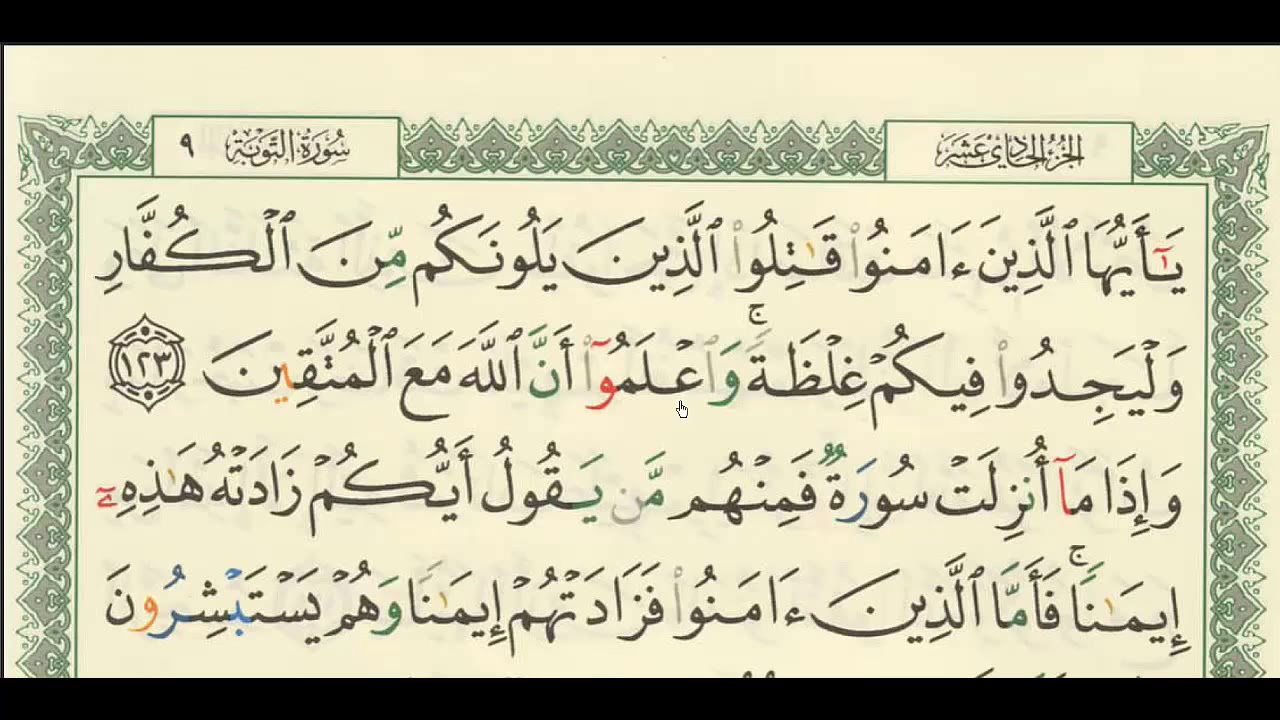 الجزء الحادي عشر
سورة التوبة ٩
يَٰٓأَيُّهَا ٱلَّذِينَ ءَامَنُوا۟ قَٰتِلُوا۟ ٱلَّذِينَ يَلُونَكُم مِّنَ ٱلْكُفَّارِ
وَلْيَجِدُوا۟ فِيكُمْ غِلْظَةً ۚ وَٱعْلَمُوٓا۟ أَنَّ ٱللَّهَ مَعَ ٱلْمُتَّقِينَ ١٢٣
وَإِذَا مَآ أُنزِلَتْ سُورَةٌ فَمِنْهُم مَّن يَقُولُ أَيُّكُمْ زَادَتْهُ هَٰذِهِۦٓ
إِيمَٰنًا ۚ فَأَمَّا ٱلَّذِينَ ءَامَنُوا۟ فَزَادَتْهُمْ إِيمَٰنًا وَهُمْ يَسْتَبْشِرُونَ